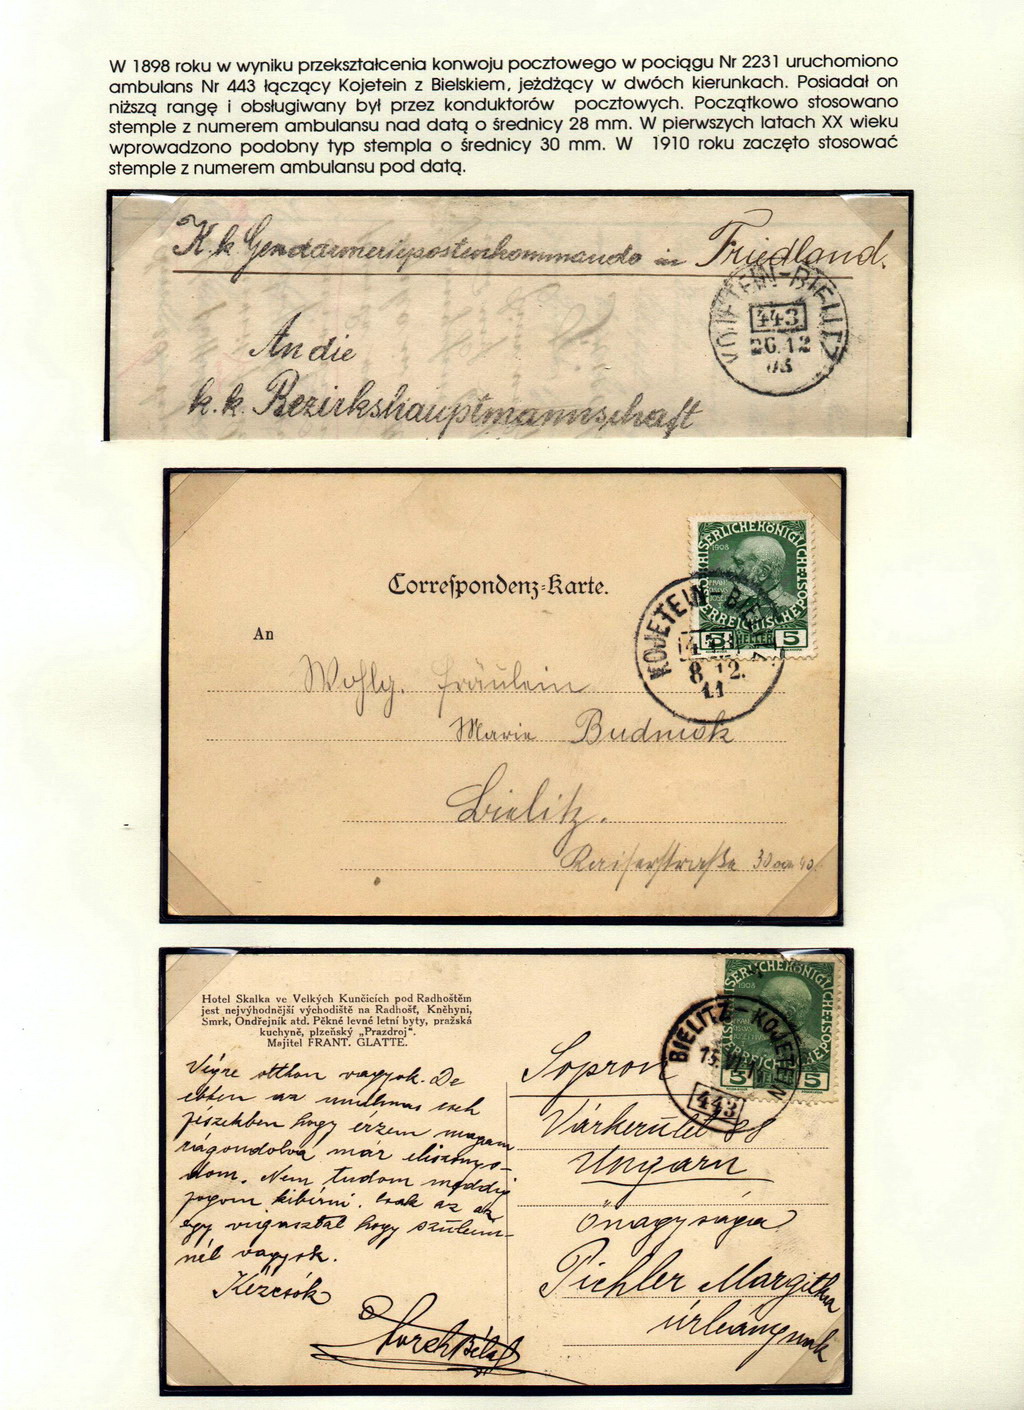 W 1898 roku w wyniku przekształcenia konwoju pocztowego w pociągu Nr 2231 uruchomiono
ambulans Nr 443 łączący Kojetein z Bielskiem, jeżdżący w dwóch kierunkach. Posiadał on
niższą rangę i obsługiwany był przez konduktorów pocztowych. Początkowo stosowano
stemple z numerem ambulansu nad datą o średnicy 28 mm. W pierwszych latach XX wieku
wprowadzono podobny typ stempla o średnicy 30 mm. W 1910 roku zaczęto stosować
stemple z numerem ambulansu pod datą.
K.k. Gendarmeriepostenkommando in Friedland.
KOJETEIN-BIELITZ
443
26.12
An die
k. k. Bezirkshauptmannschaft
ÖSTERREICHISCHE POST
1908
5 HELLER 5
Correspondenz-Karte.
KOJETEIN BIEL
8 12.
11
An
Wohlg. Fräulein
Marie Budniok
Bielitz.
Kaiserstraße 30
Hotel Skalka ve Velkých Kunčicích pod Radhoštěm
jest nejvýhodnější východiště na Radhošť, Kněhyni,
Smrk, Ondřejník atd. Pěkné levné letní byty, pražská
kuchyně, plzeňský „Prazdroj".
Majitel FRANT. GLATTE.
1908
5 HELLER 5
BIELITZ KOJETEIN
15.VI.1
443
Végre otthon vagyok. De
ebben az unalmas cseh
fészekben hogy érzem magam
rágondolva már elszonyo-
dom. Nem tudom meddig
fogom kibirni. Csak az az
egy vigasztal hogy szüleim-
nél vagyok.
Kézcsók
Béla
Sopron
Várkerület 88
Ungarn
Önagysága
Pichler Margitka
úrleánynak